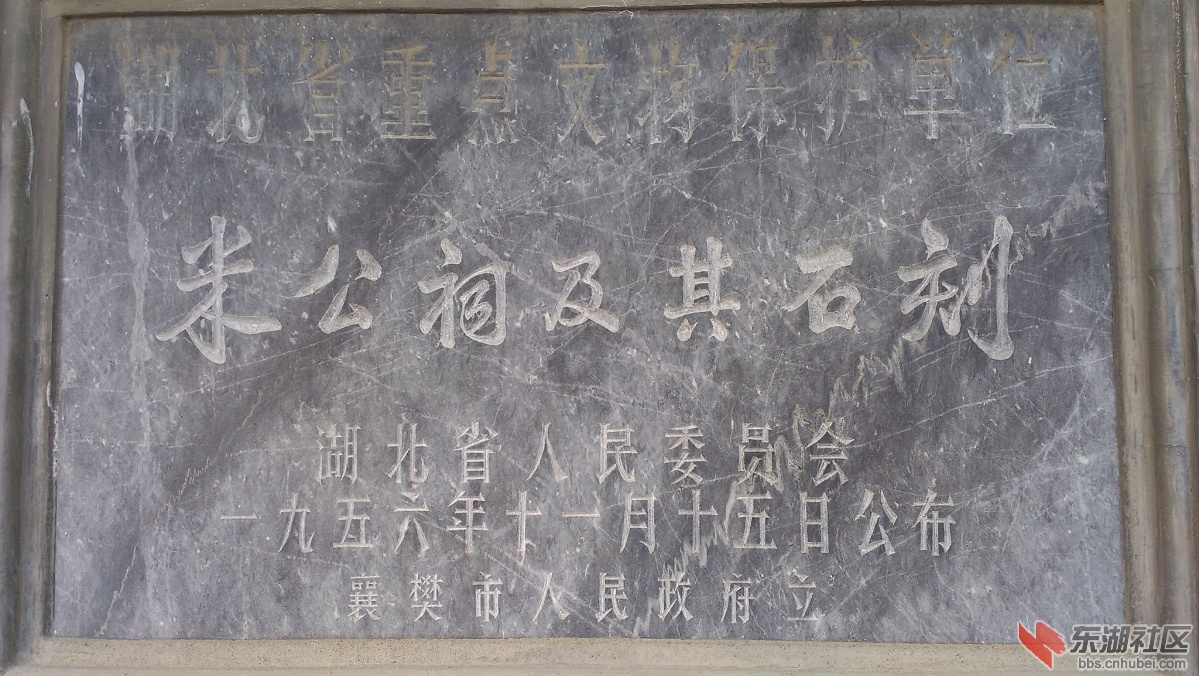 湖北省重点文物保护单位
米公祠及其石刻
湖北省人民委员会
一九五六年十一月十五日公布
襄樊市人民政府立
东湖社区
bbs.cnhubei.com